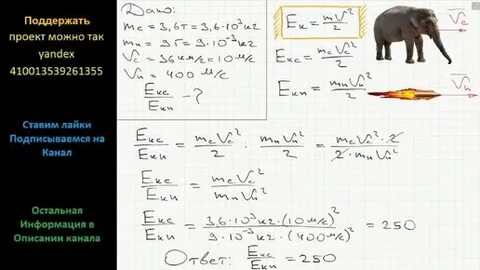 Поддержать
проект можно так
yandex
410013539261355
Ставим лайки
Подписываемся на
Канал
Остальная
Информация в
Описании канала
Дано:
mс = 3,6т = 3,6·10³кг
mп = 9г = 9·10⁻³кг
Vс = 36 км/ч = 10 м/с
Vп = 400 м/с
Eкс/Eкп - ?
Eк = mV²/2
Eкс = mсVс²/2
Eкп = mпVп²/2
Vс
Vп
Eкс/Eкп = mсVс²/2 : mпVп²/2 = mсVс²·2/2·mпVп²
Eкс/Eкп = mсVс²/mпVп²
Eкс/Eкп = 3,6·10³кг·(10 м/с)²/9·10⁻³кг·(400 м/с)² = 250
Ответ: Eкс/Eкп = 250